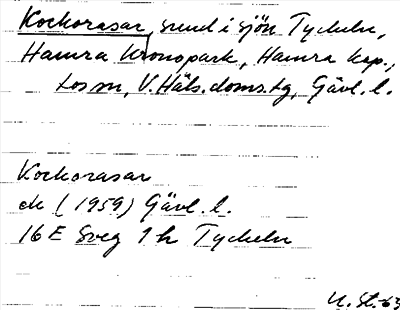 Kockorasar, sund i sjön Tyckeln,
Hamra Kronopark, Hamra kap.,
Los sn, V. Häls. doms.tg, Gävl. l.
Kockorasar
ek (1959) Gävl. l.
16E Sveg 1h Tyckeln
U. St. 63